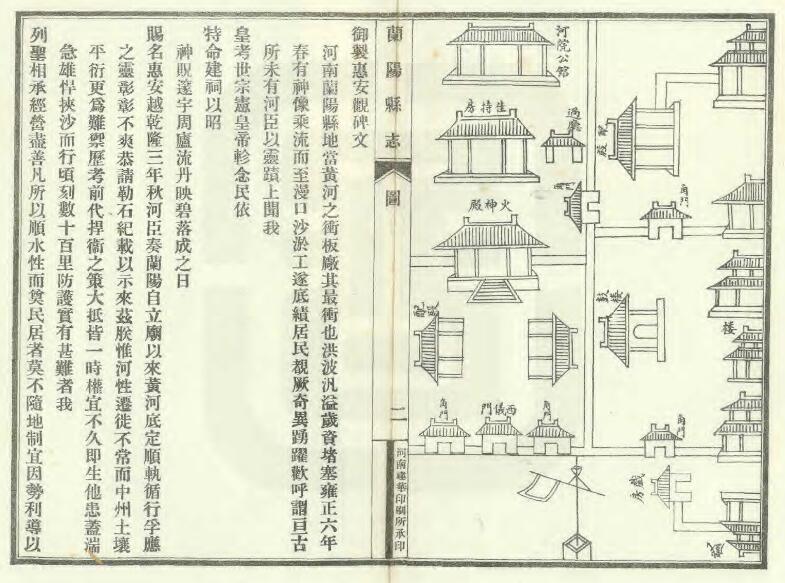 河院公館
住持房
過廳
配殿
角門
角門
火神殿
鼓樓
配殿
樓
角門
西儀門
角門
角門
戲房
戲
蘭陽縣志
圖
二
河南建華印刷所承印
御製惠安觀碑文
河南蘭陽縣地當黃河之衝板廠其最衝也洪波汎溢歲資堵塞雍正六年
春有神像乘流而至漫口沙淤工遂底績居民覩厥奇異踴躍歡呼謂亘古
所未有河臣以靈蹟上聞我
皇考世宗憲皇帝軫念民依
特命建祠以昭
神貺邃宇周廬流丹映碧落成之日
賜名惠安越乾隆三年秋河臣奏蘭陽自立廟以來黃河底定順軌循行孚應
之靈彰彰不爽恭請勒石紀載以示來茲朕惟河性遷徙不常而中州土壤
平衍更為難禦歷考前代捍衞之策大抵皆一時權宜不久即生他患蓋湍
急雄悍挾沙而行頃刻數十百里防護實有甚難者我
列聖相承經營盡善凡所以順水性而奠民居者莫不隨地制宜因勢利導以